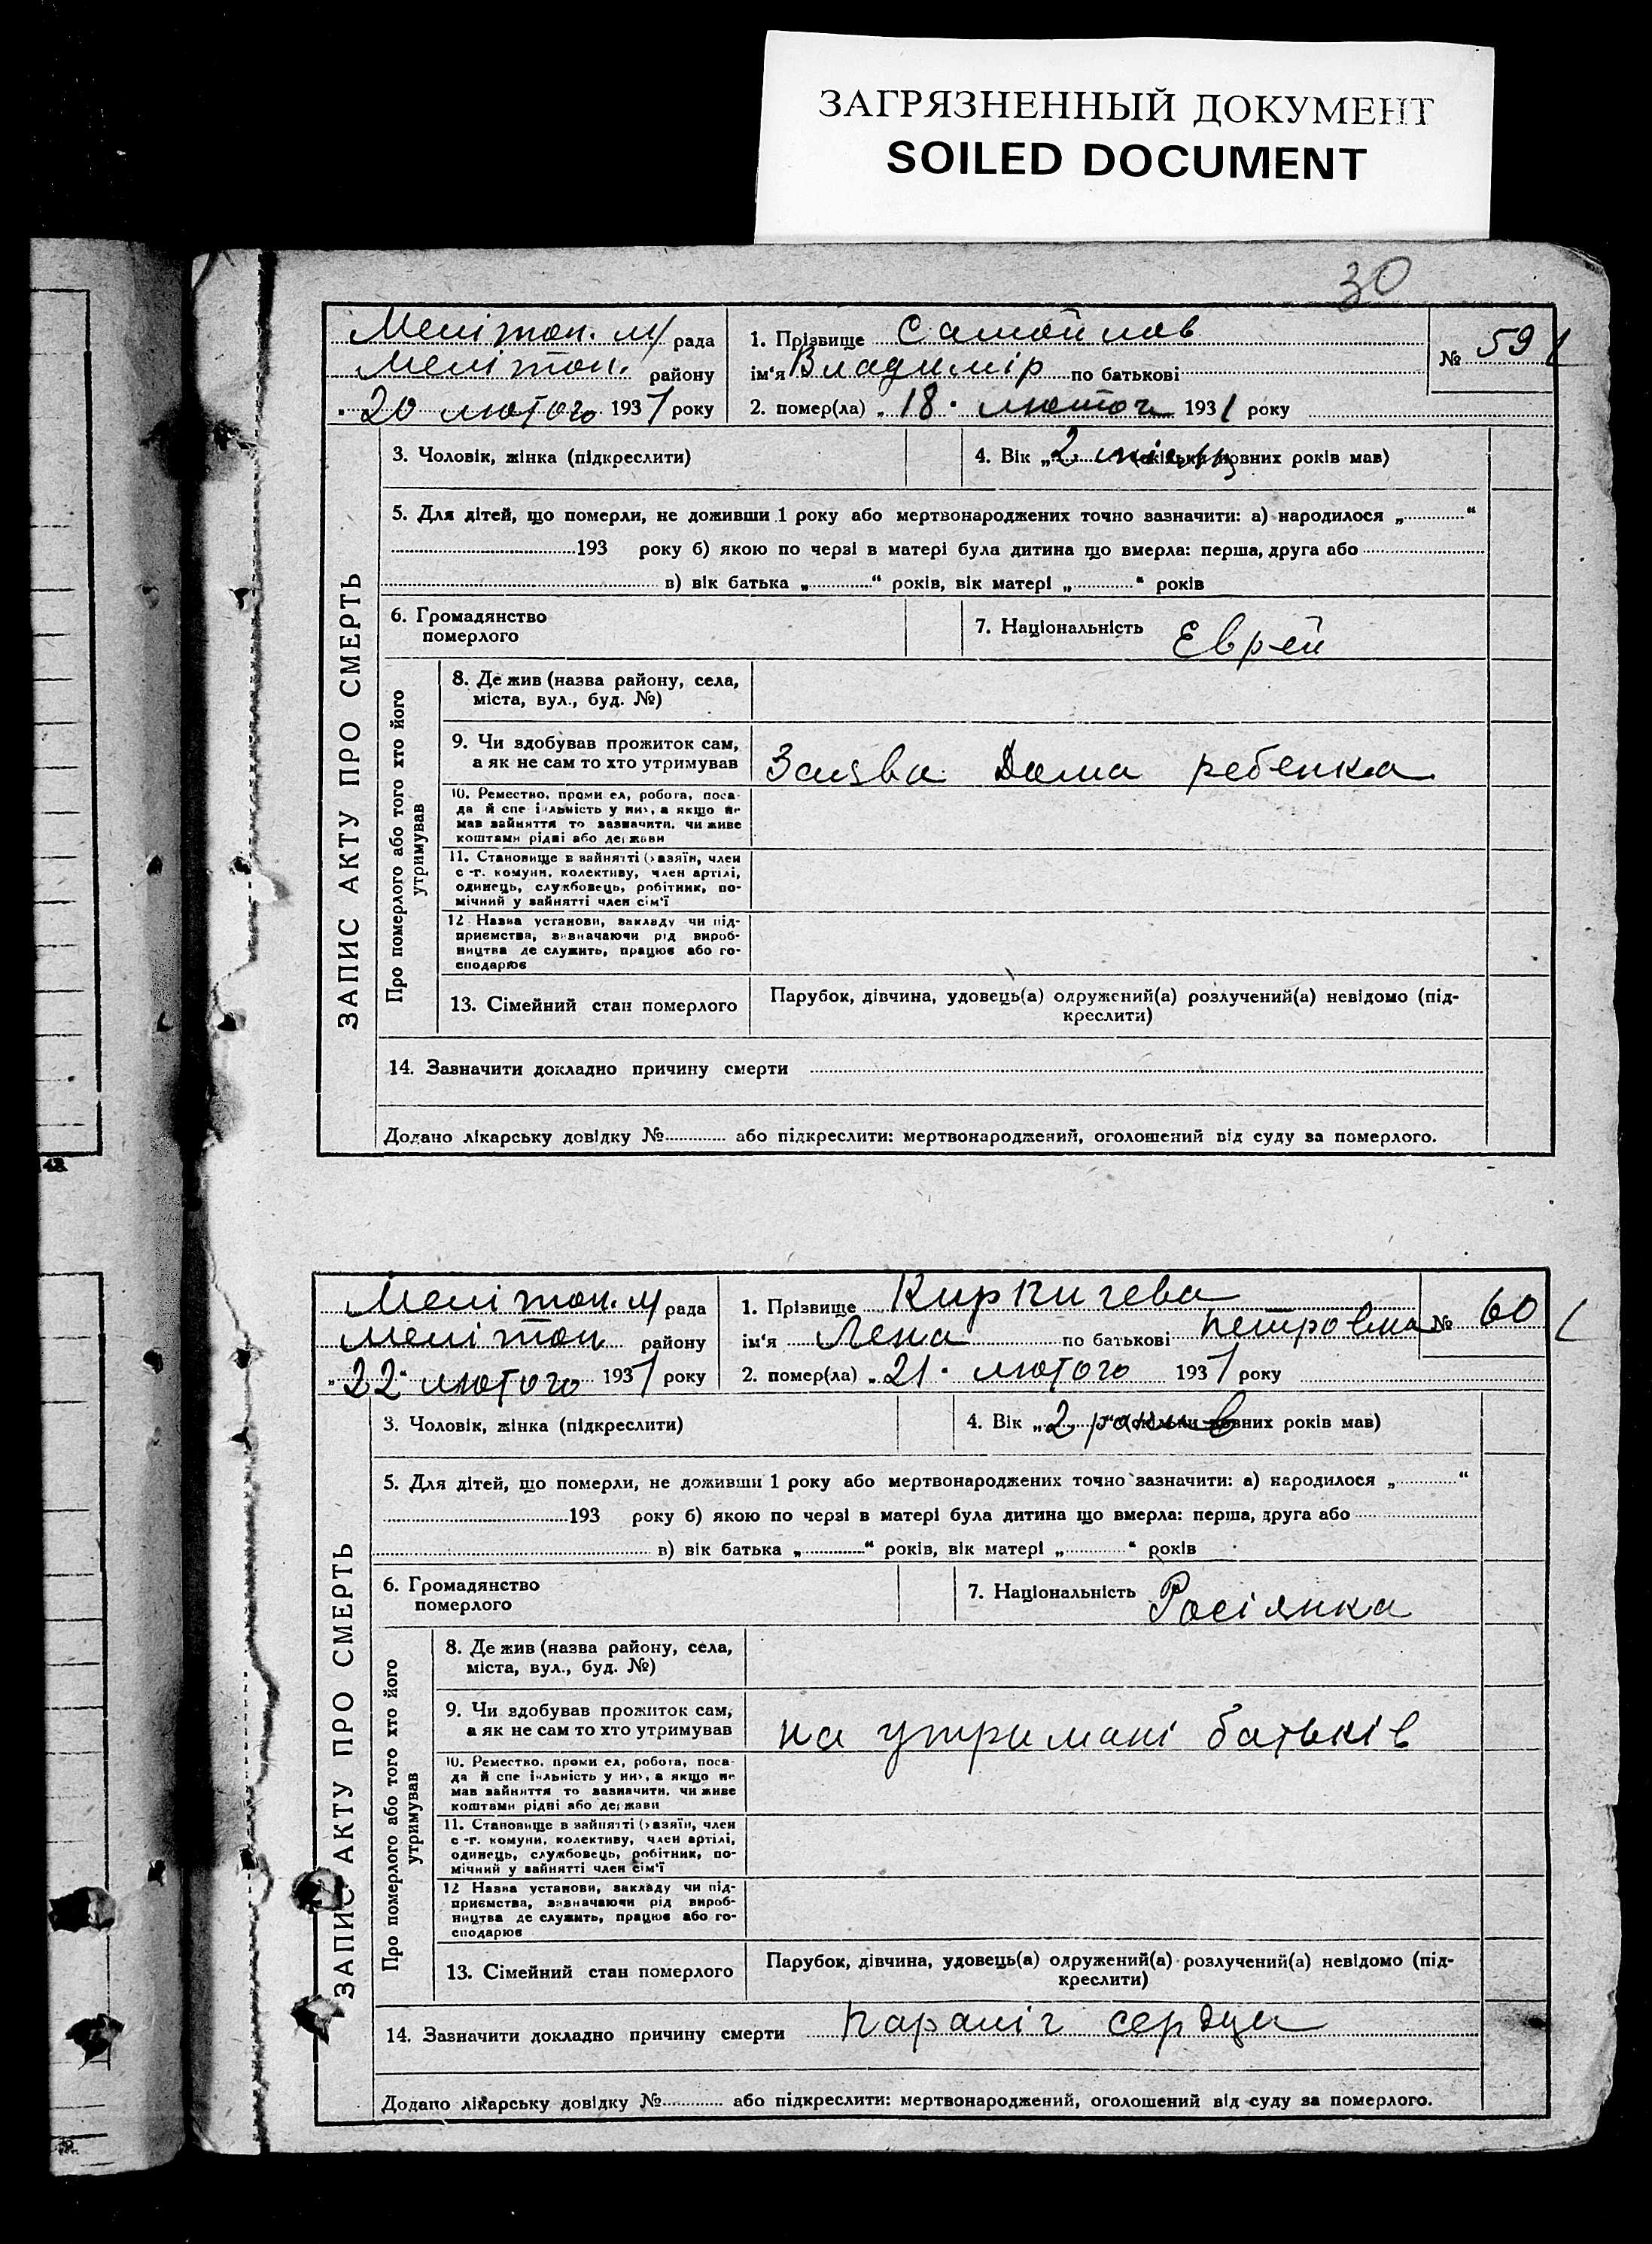 ЗАГРЯЗНЕННЫЙ ДОКУМЕНТ
SOILED DOCUMENT
30
Мелітоп. м/ рада
Мелітоп. району
„20 лютого 1931 року
1. Прізвище Самойлов
ім'я Владимір по батькові
2. помер(ла) „18" лютого 1931 року
№ 59
ЗАПИС АКТУ ПРО СМЕРТЬ
3. Чоловік, жінка (підкреслити)
4. Вік „2 місяц (скільки повних років мав)
5. Для дітей, що померли, не доживши 1 року або мертвонароджених точно зазначити: а) народилося „ “
193 року б) якою по черзі в матері була дитина що вмерла: перша, друга або
в) вік батька „ “ років, вік матері „ “ років
6. Громадянство
померлого
7. Національність Еврей
Про померлого або того хто його
утримував
8. Де жив (назва району, села,
міста, вул., буд. №)
9. Чи здобував прожиток сам,
а як не сам то хто утримував
Заява Дома ребенка
10. Ремество, проми ел, робота, поса-
да й спе і льність у ни›, а якщо не
мав зайняття то зазначити, чи живе
коштами рідні або держави
11. Становище в зайнятті (хазяїн, член
с -г. комуни, колективу, член артілі,
одинець, службовець, робітник, по-
мічний у зайнятті член сім'ї
12 Назва установи, закладу чи під-
приємства, визначаючи рід вироб-
ництва де служить, працює або го-
сподарює
13. Сімейний стан померлого
Парубок, дівчина, удовець(а) одружений(а) розлучений(а) невідомо (під-
креслити)
14. Зазначити докладно причину смерти
Додано лікарську довідку № або підкреслити: мертвонароджений, оголошений від суду за померлого.
Мелітоп. м/ рада
Мелітоп району
„22" лютого 1931 року
1. Прізвище Киркичева
ім'я Лена по батькові Петровна
2. помер(ла) „21" лютого 1931 року
№ 60
ЗАПИС АКТУ ПРО СМЕРТЬ
3. Чоловік, жінка (підкреслити)
4. Вік „2 роки (скільки повних років мав)
5. Для дітей, що померли, не доживши 1 року або мертвонароджених точно зазначити: а) народилося „ “
193 року б) якою по черзі в матері була дитина що вмерла: перша, друга або
в) вік батька „ “ років, вік матері „ “ років
6. Громадянство
померлого
7. Національність Росіянка
Про померлого або того хто його
утримував
8. Де жив (назва району, села,
міста, вул., буд. №)
9. Чи здобував прожиток сам,
а як не сам то хто утримував
на утримані батьків
10. Ремество, проми ел, робота, поса-
да й спе і льність у ни›, а якщо не
мав зайняття то зазначити, чи живе
коштами рідні або держави
11. Становище в зайнятті (хазяїн, член
с -г. комуни, колективу, член артілі,
одинець, службовець, робітник, по-
мічний у зайнятті член сім'ї
12 Назва установи, закладу чи під-
приємства, визначаючи рід вироб-
ництва де служить, працює або го-
сподарює
13. Сімейний стан померлого
Парубок, дівчина, удовець(а) одружений(а) розлучений(а) невідомо (під-
креслити)
14. Зазначити докладно причину смерти Параліч сердца
Додано лікарську довідку № або підкреслити: мертвонароджений, оголошений від суду за померлого.